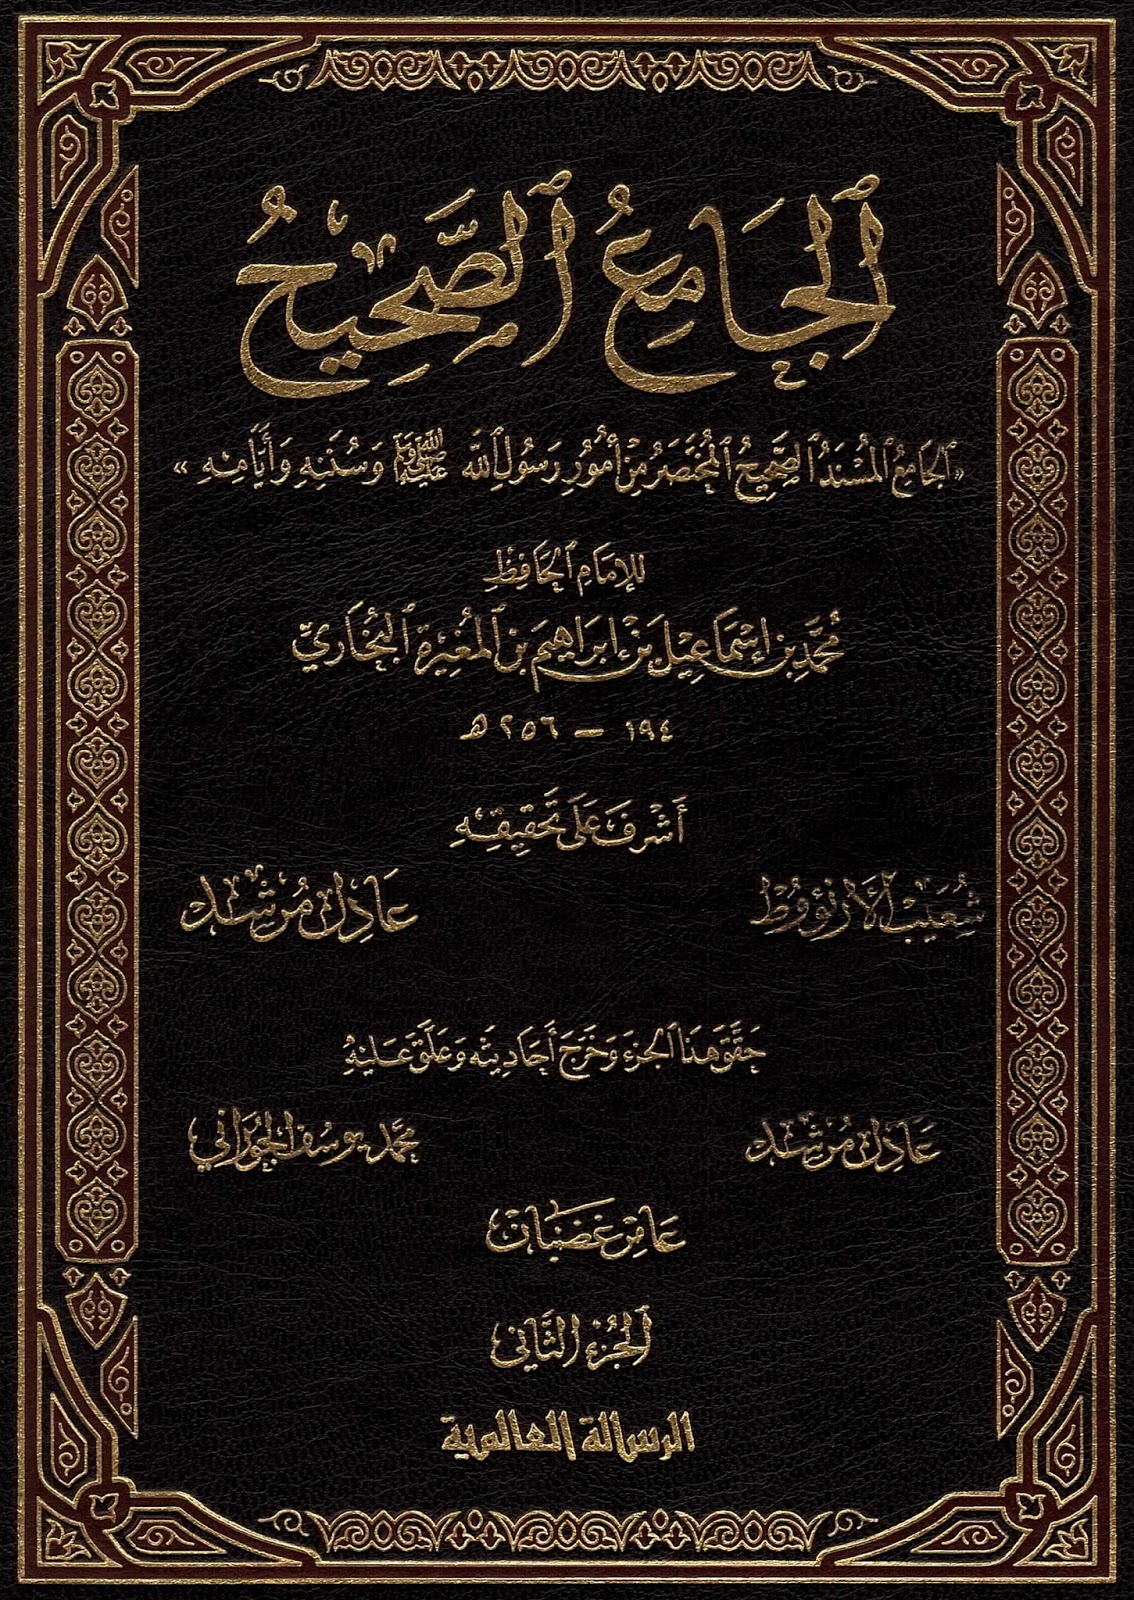 الجَامِعُ الصَّحِيحُ
«الجَامِعُ المُسْنَدُ الصَّحِيحُ المُخْتَصَرُ مِنْ أُمُورِ رَسُولِ اللَّهِ ﷺ وَسُنَنِهِ وَأَيَّامِهِ»
للإمَامِ الحَافِظِ
مُحَمَّدِ بنِ إِسْمَاعِيلَ بنِ إِبرَاهِيمَ بنِ المُغِيرَةِ البُخَارِيِّ
١٩٤ – ٢٥٦ هـ
أَشْرَفَ عَلَى تَحْقِيقِهِ
شُعَيْبُ الأَرْنَؤُوطُ عَادِل مُرْشِد
حَقَّقَ هَذَا الجُزْءَ وَخَرَّجَ أَحَادِيثَه وَعَلَّقَ عَلَيْهِ
عَادِل مُرْشِد محمَّد يوسُف الحَوْرَاني
عَامِر غَضْبَان
الجُزْءُ الثَّانِي
الرسالة العالمية